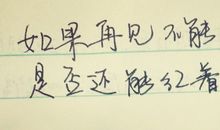 如果再见不能
是否还能红着